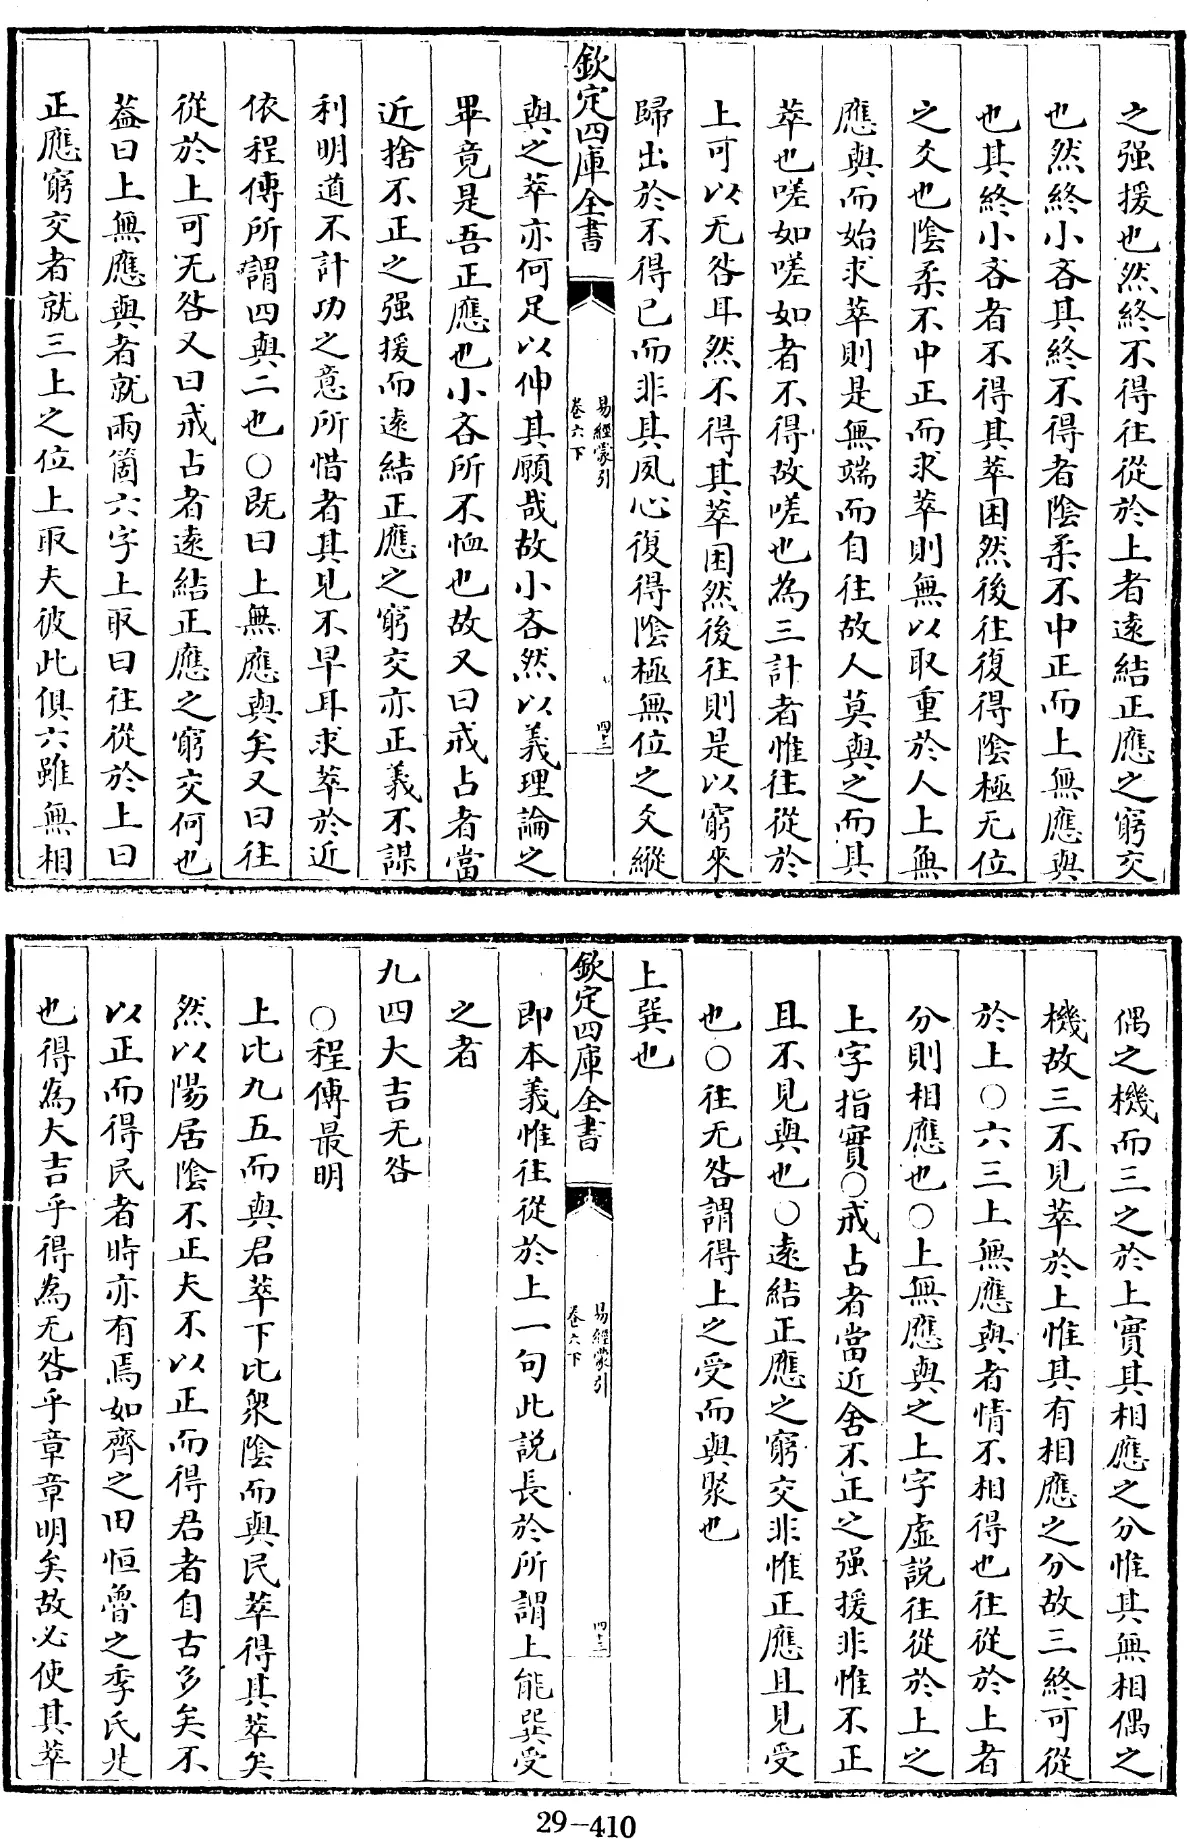 之强援也然終不得往從於上者遠結正應之窮交
也然終小吝其終不得者陰柔不中正而上無應與
也其終小吝者不得其萃困然後往復得陰極无位
之爻也陰柔不中正而求萃則無以取重於人上無
應與而始求萃則是無端而自往故人莫與之而其
萃也嗟如嗟如者不得故嗟也為三計者惟往從於
上可以无咎耳然不得其萃困然後往則是以窮來
歸出於不得已而非其夙心復得陰極無位之爻縱
欽定四庫全書
易經蒙引
卷六下
四十二
與之萃亦何足以伸其願哉故小吝然以義理論之
畢竟是吾正應也小吝所不恤也故又曰戒占者當
近捨不正之强援而遠結正應之窮交亦正義不謀
利明道不計功之意所惜者其見不早耳求萃於近
依程傳所謂四與二也○既曰上無應與矣又曰往
從於上可无咎又曰戒占者遠結正應之窮交何也
葢曰上無應與者就兩箇六字上取曰往從於上曰
正應窮交者就三上之位上取夫彼此俱六雖無相
偶之機而三之於上實其相應之分惟其無相偶之
機故三不見萃於上惟其有相應之分故三終可從
於上○六三上無應與者情不相得也往從於上者
分則相應也○上無應與之上字虛說往從於上之
上字指實○戒占者當近舍不正之强援非惟不正
且不見與也○遠結正應之窮交非惟正應且見受
也○往无咎謂得上之受而與聚也
上巽也
欽定四庫全書
易經蒙引
卷六下
四十三
即本義惟往從於上一句此説長於所謂上能巽受
之者
九四大吉无咎
○程傳最明
上比九五而與君萃下比衆陰而與民萃得其萃矣
然以陽居陰不正夫不以正而得君者自古多矣不
以正而得民者時亦有焉如齊之田恒魯之季氏此
也得為大吉乎得為无咎乎章章明矣故必使其萃
29-410